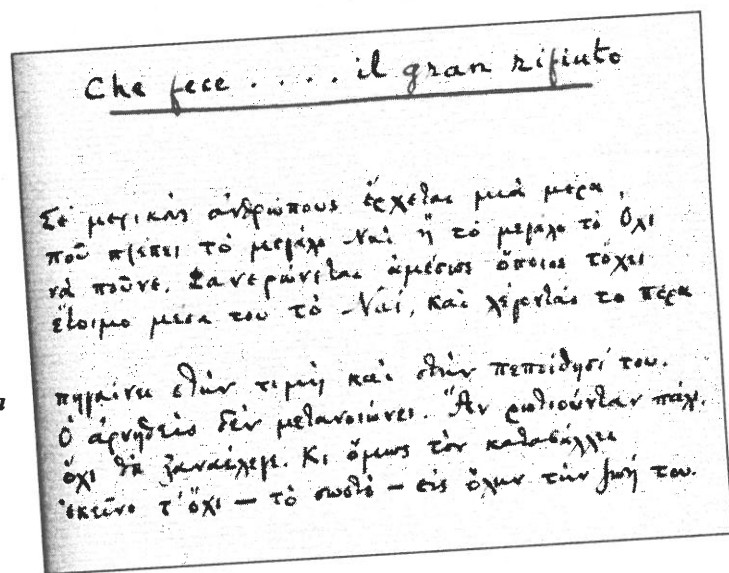 Che fece . . . . il gran rifiuto
Σέ μερικούς ἀνθρώπους ἔρχεται μιά μέρα ,
ποῦ πρέπει τό μεγάλο Ναί ἤ τό μεγάλο τό Ὄχι
νά ποῦνε. Φανερώνεται ἀμέσως ὅποιος τὄχει
ἕτοιμο μέσα του τό Ναί, καί λέγοντάς το πέρα
πηγαίνει στήν τιμή καί στήν πεποίθησί του.
Ὁ ἀρνηθείς δέν μετανοιώνει. Ἄν ρωτιοῦνταν πάλι,
ὄχι θά ξαναέλεγε. Κι ὅμως τόν καταβάλλει
ἐκεῖνο τ' ὄχι — τό σωστό — εἰς ὅλην τήν ζωή του.